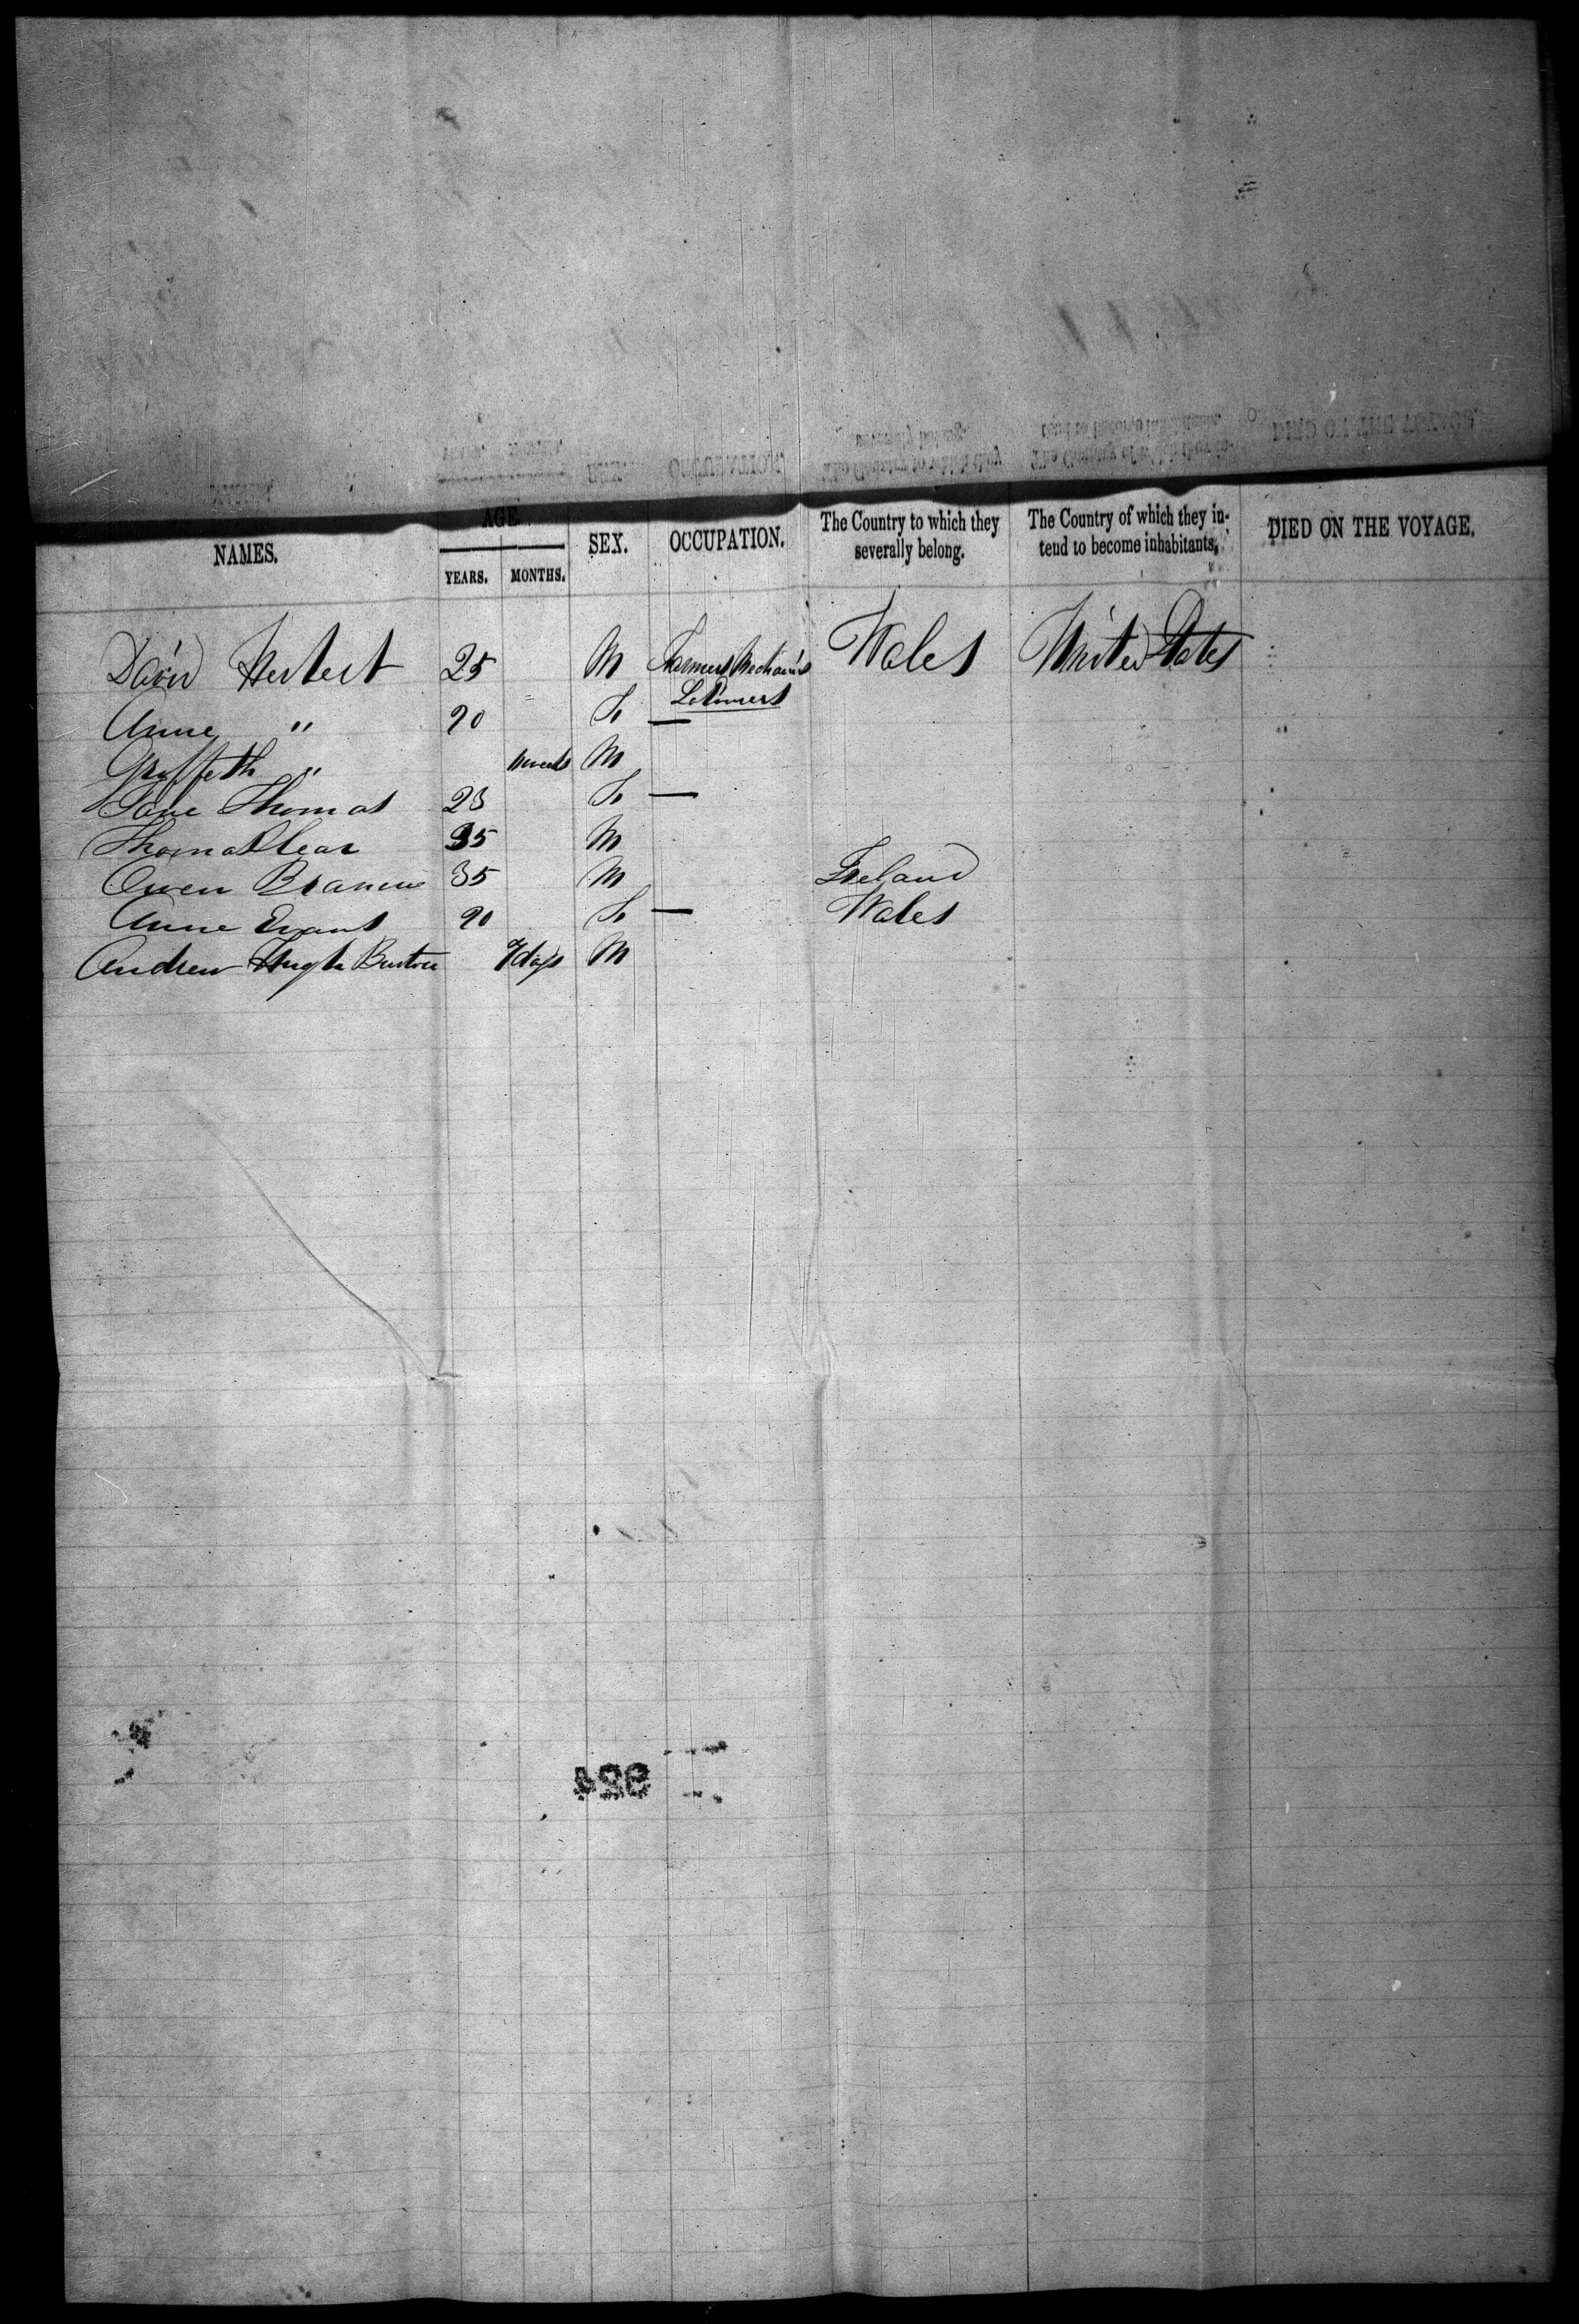 NAMES.
AGE
YEARS. MONTHS.
SEX.
OCCUPATION.
The Country to which they
severally belong.
The Country of which they in-
tend to become inhabitants.
DIED ON THE VOYAGE.
David Herbert 25 M Farmers Mechanics Wales United States
Anne " 20 F —
Griffeth " M
Jane Thomas 23 F —
Thomas 35 M
Owen 35 M Ireland
Anne Evans 20 F — Wales
Andrew Hugh Burton 7 days M